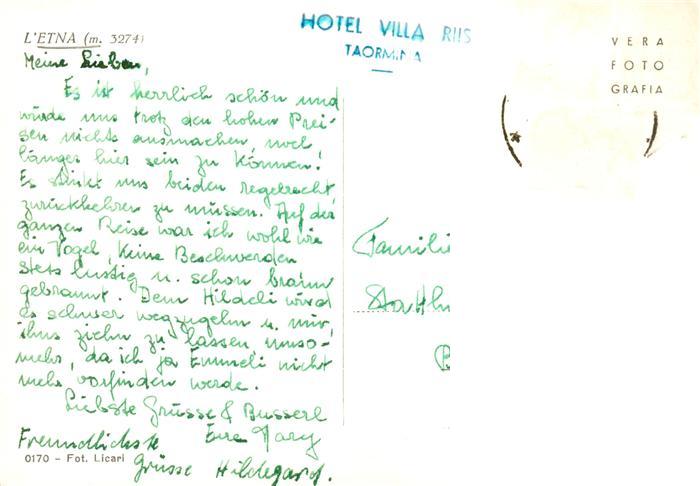 L'ETNA (m. 3274)
HOTEL VILLA RIIS
TAORMINA
VERA
FOTO
GRAFIA
Meine Lieben,
Es ist herrlich schön und
würde uns trotz den hohen Prei-
sen nichts ausmachen, noch
länger hier sein zu können!
Es stinkt uns beiden regelrecht,
zurückkehren zu müssen. Auf der
ganzen Reise war ich wohl wie
ein Vogel, keine Beschwerden
stets lustig u. schon braun
gebrannt. Dem Hildeli wird
es schwer wegzugehn u. mir,
ihns ziehn zu lassen, umso-
mehr, da ich ja Emmeli nicht
mehr vorfinden werde.
Liebste Grüsse & Busserl
Eure
Freundlichste
Grüsse Hildegard.
Familie
0170 - Fot. Licari